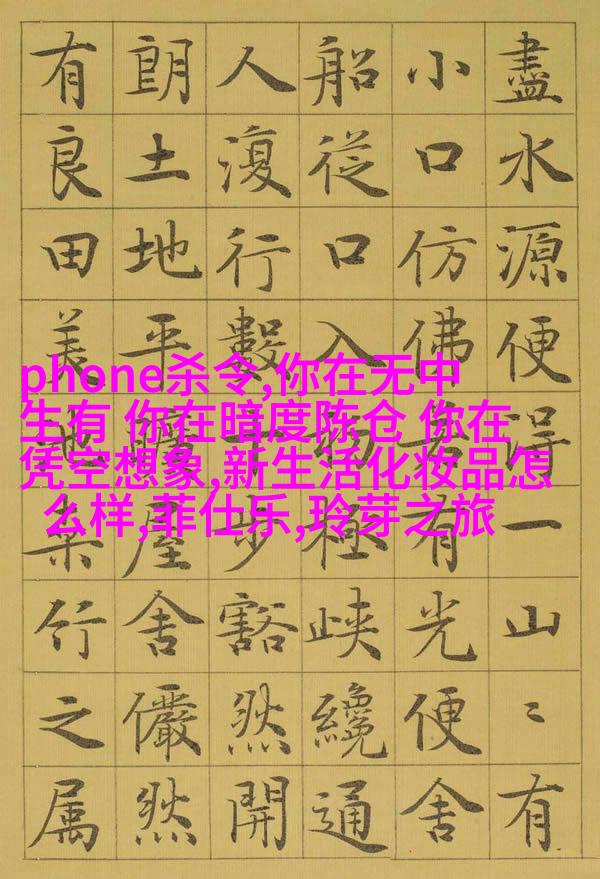 盡水源便得一山〻有
小口仿佛若有光便舍
船從口入初極峽纔通
人復行數十步豁然開
朗土地平曠屋舍儼然
有良田美池桑竹之属
phone杀令,你在无中
生有 你在暗度陈仓 你在
凭空想象,新生活化妆品怎
么样,菲仕乐,玲芽之旅